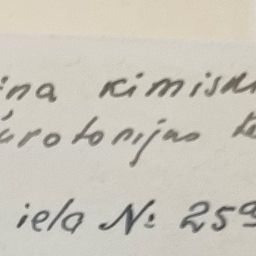 ina kimisk
urotonijas
iela № 25a